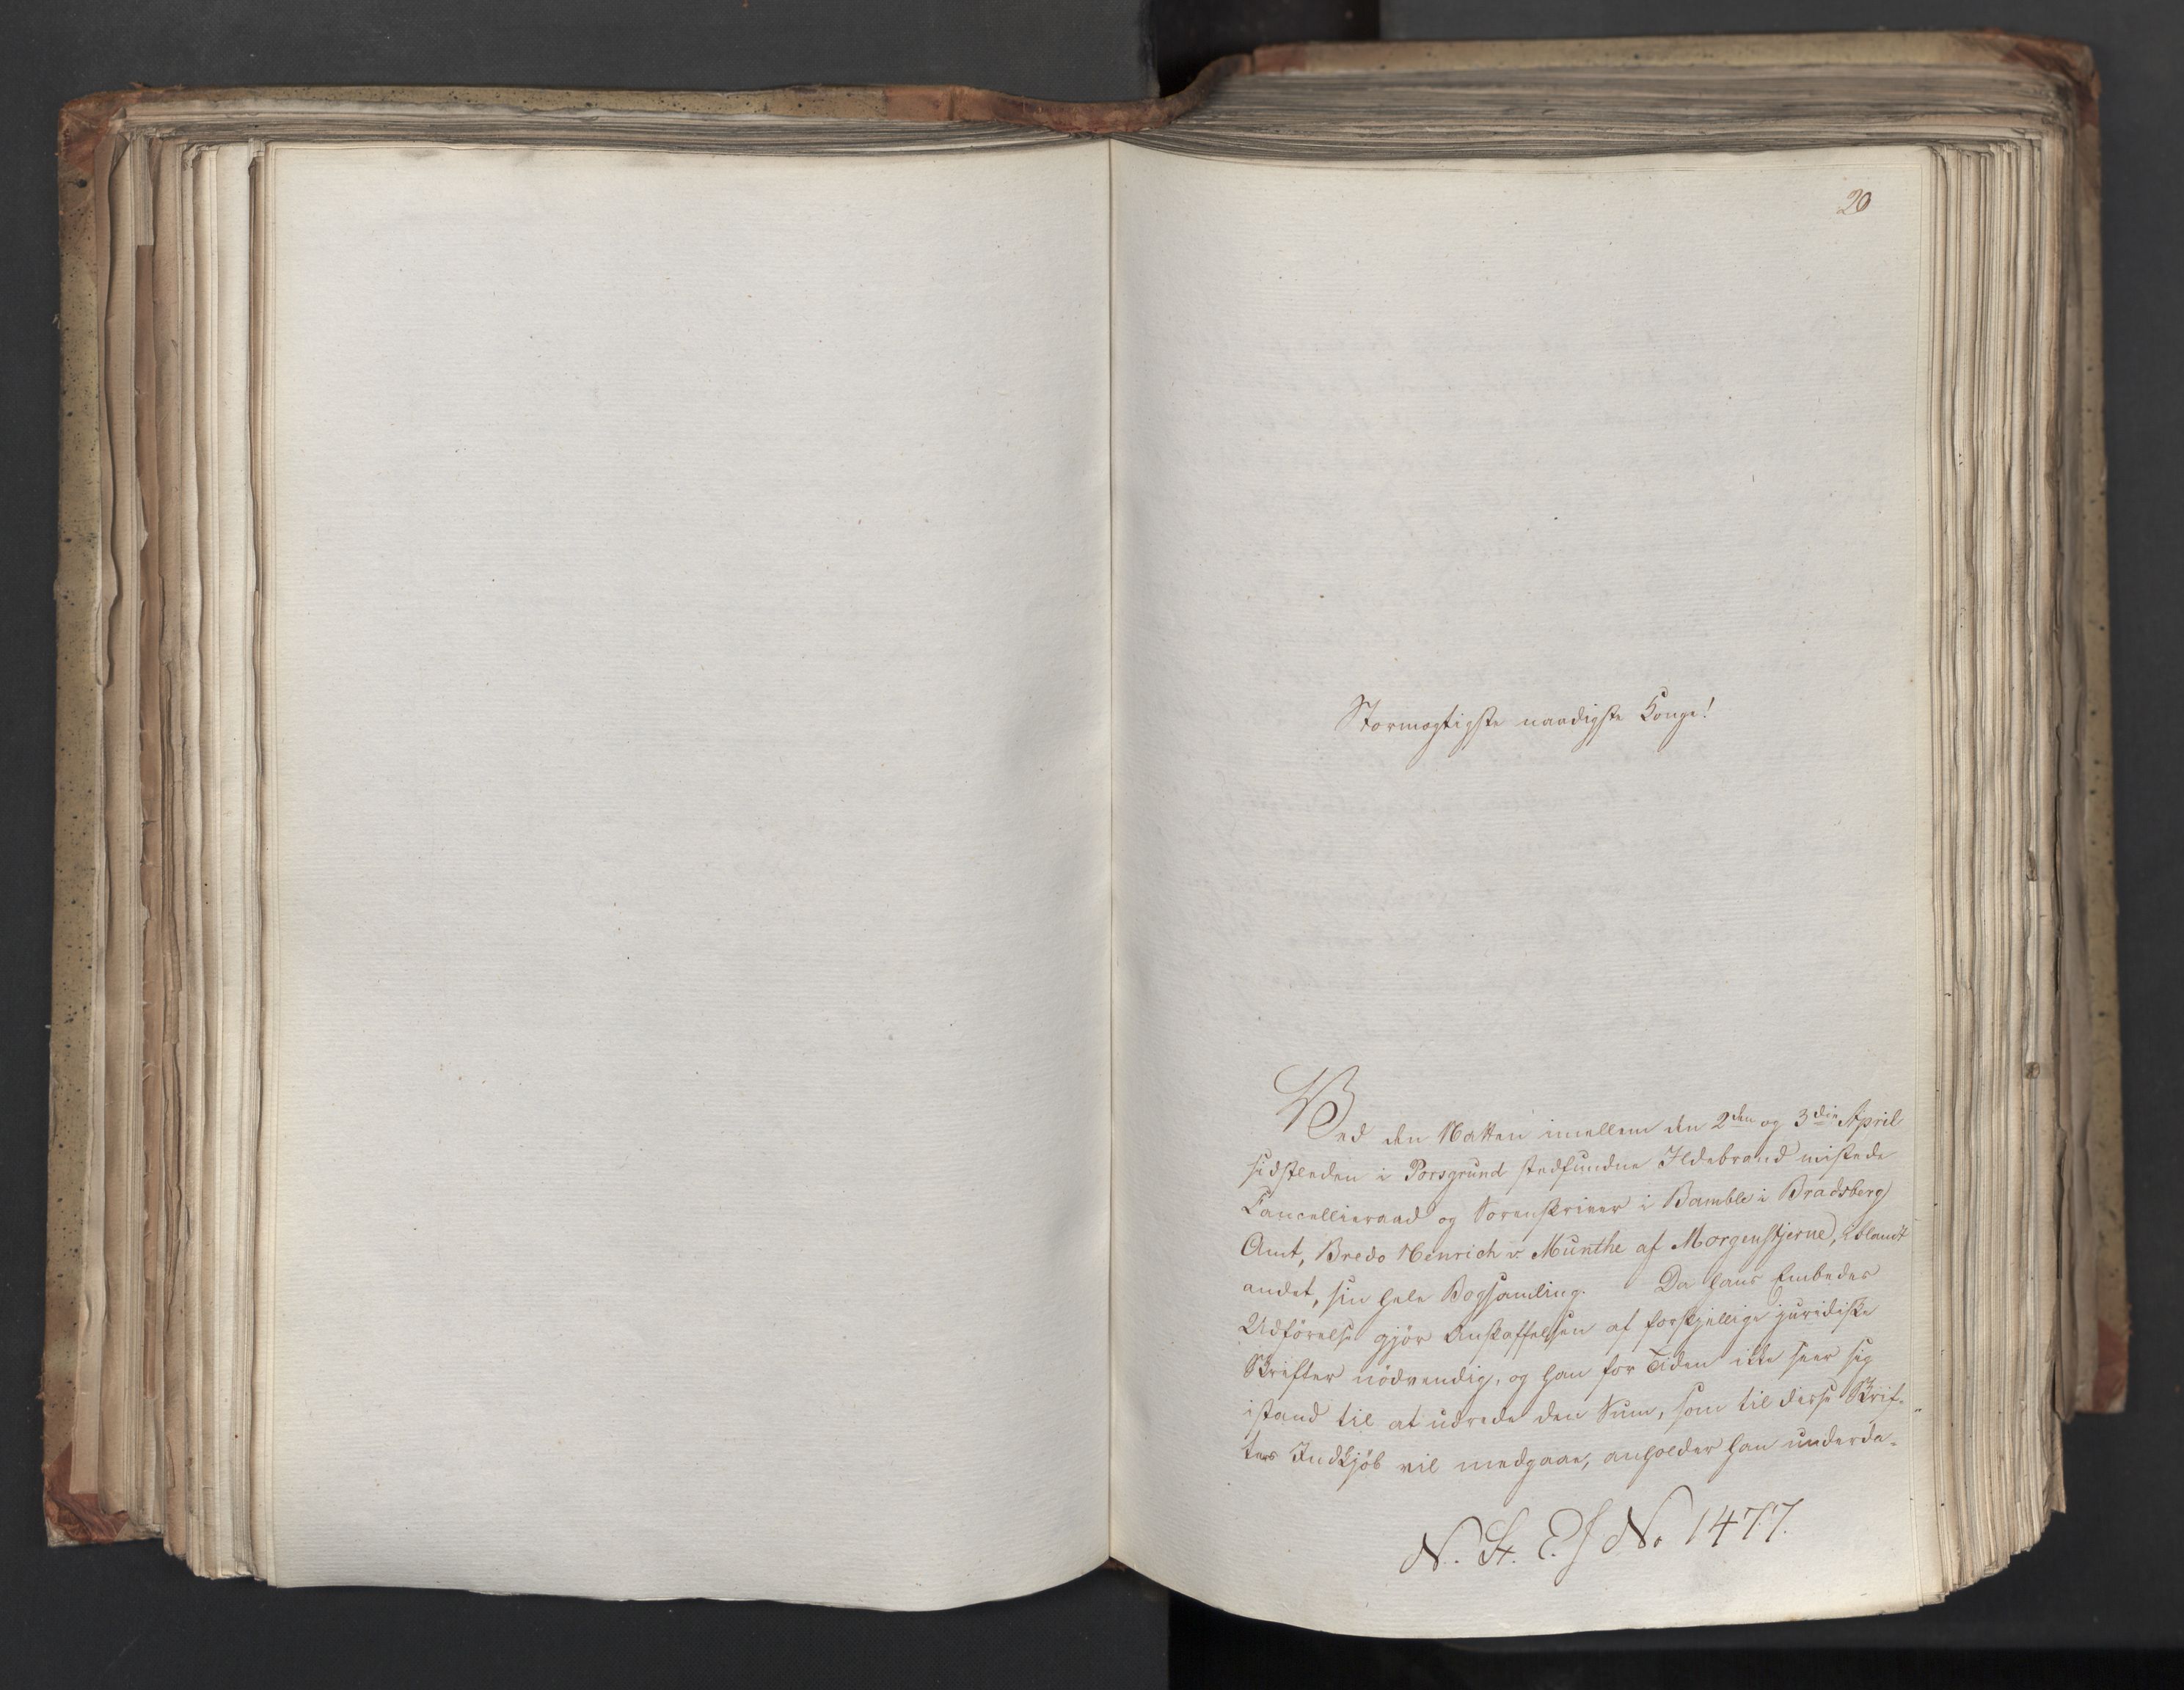 20
Stormægtigste naadigste Konge!
Ved den Natten imellem den 2den og 3die April
sidstleden i Porsgrund stedfundne Ildebrand mistede
Cancellieraad og Sorenskriver i Bamble i Bradsberg
Amt, Bredo Henrich v Munthe af Morgenstjerne, iblandt
andet, sin hele Bogsamling. Da hans Embedes
Udförelse gjör Anskaffelsen af forskjellige juridiske
Skrifter nödvendig, og han for Tiden ikke seer sig
istand til at udrede den Sum, som til disse Skrif-
ters Indkjöb vil medgaae, anholder han underda-
N. St. E. J No 1477.